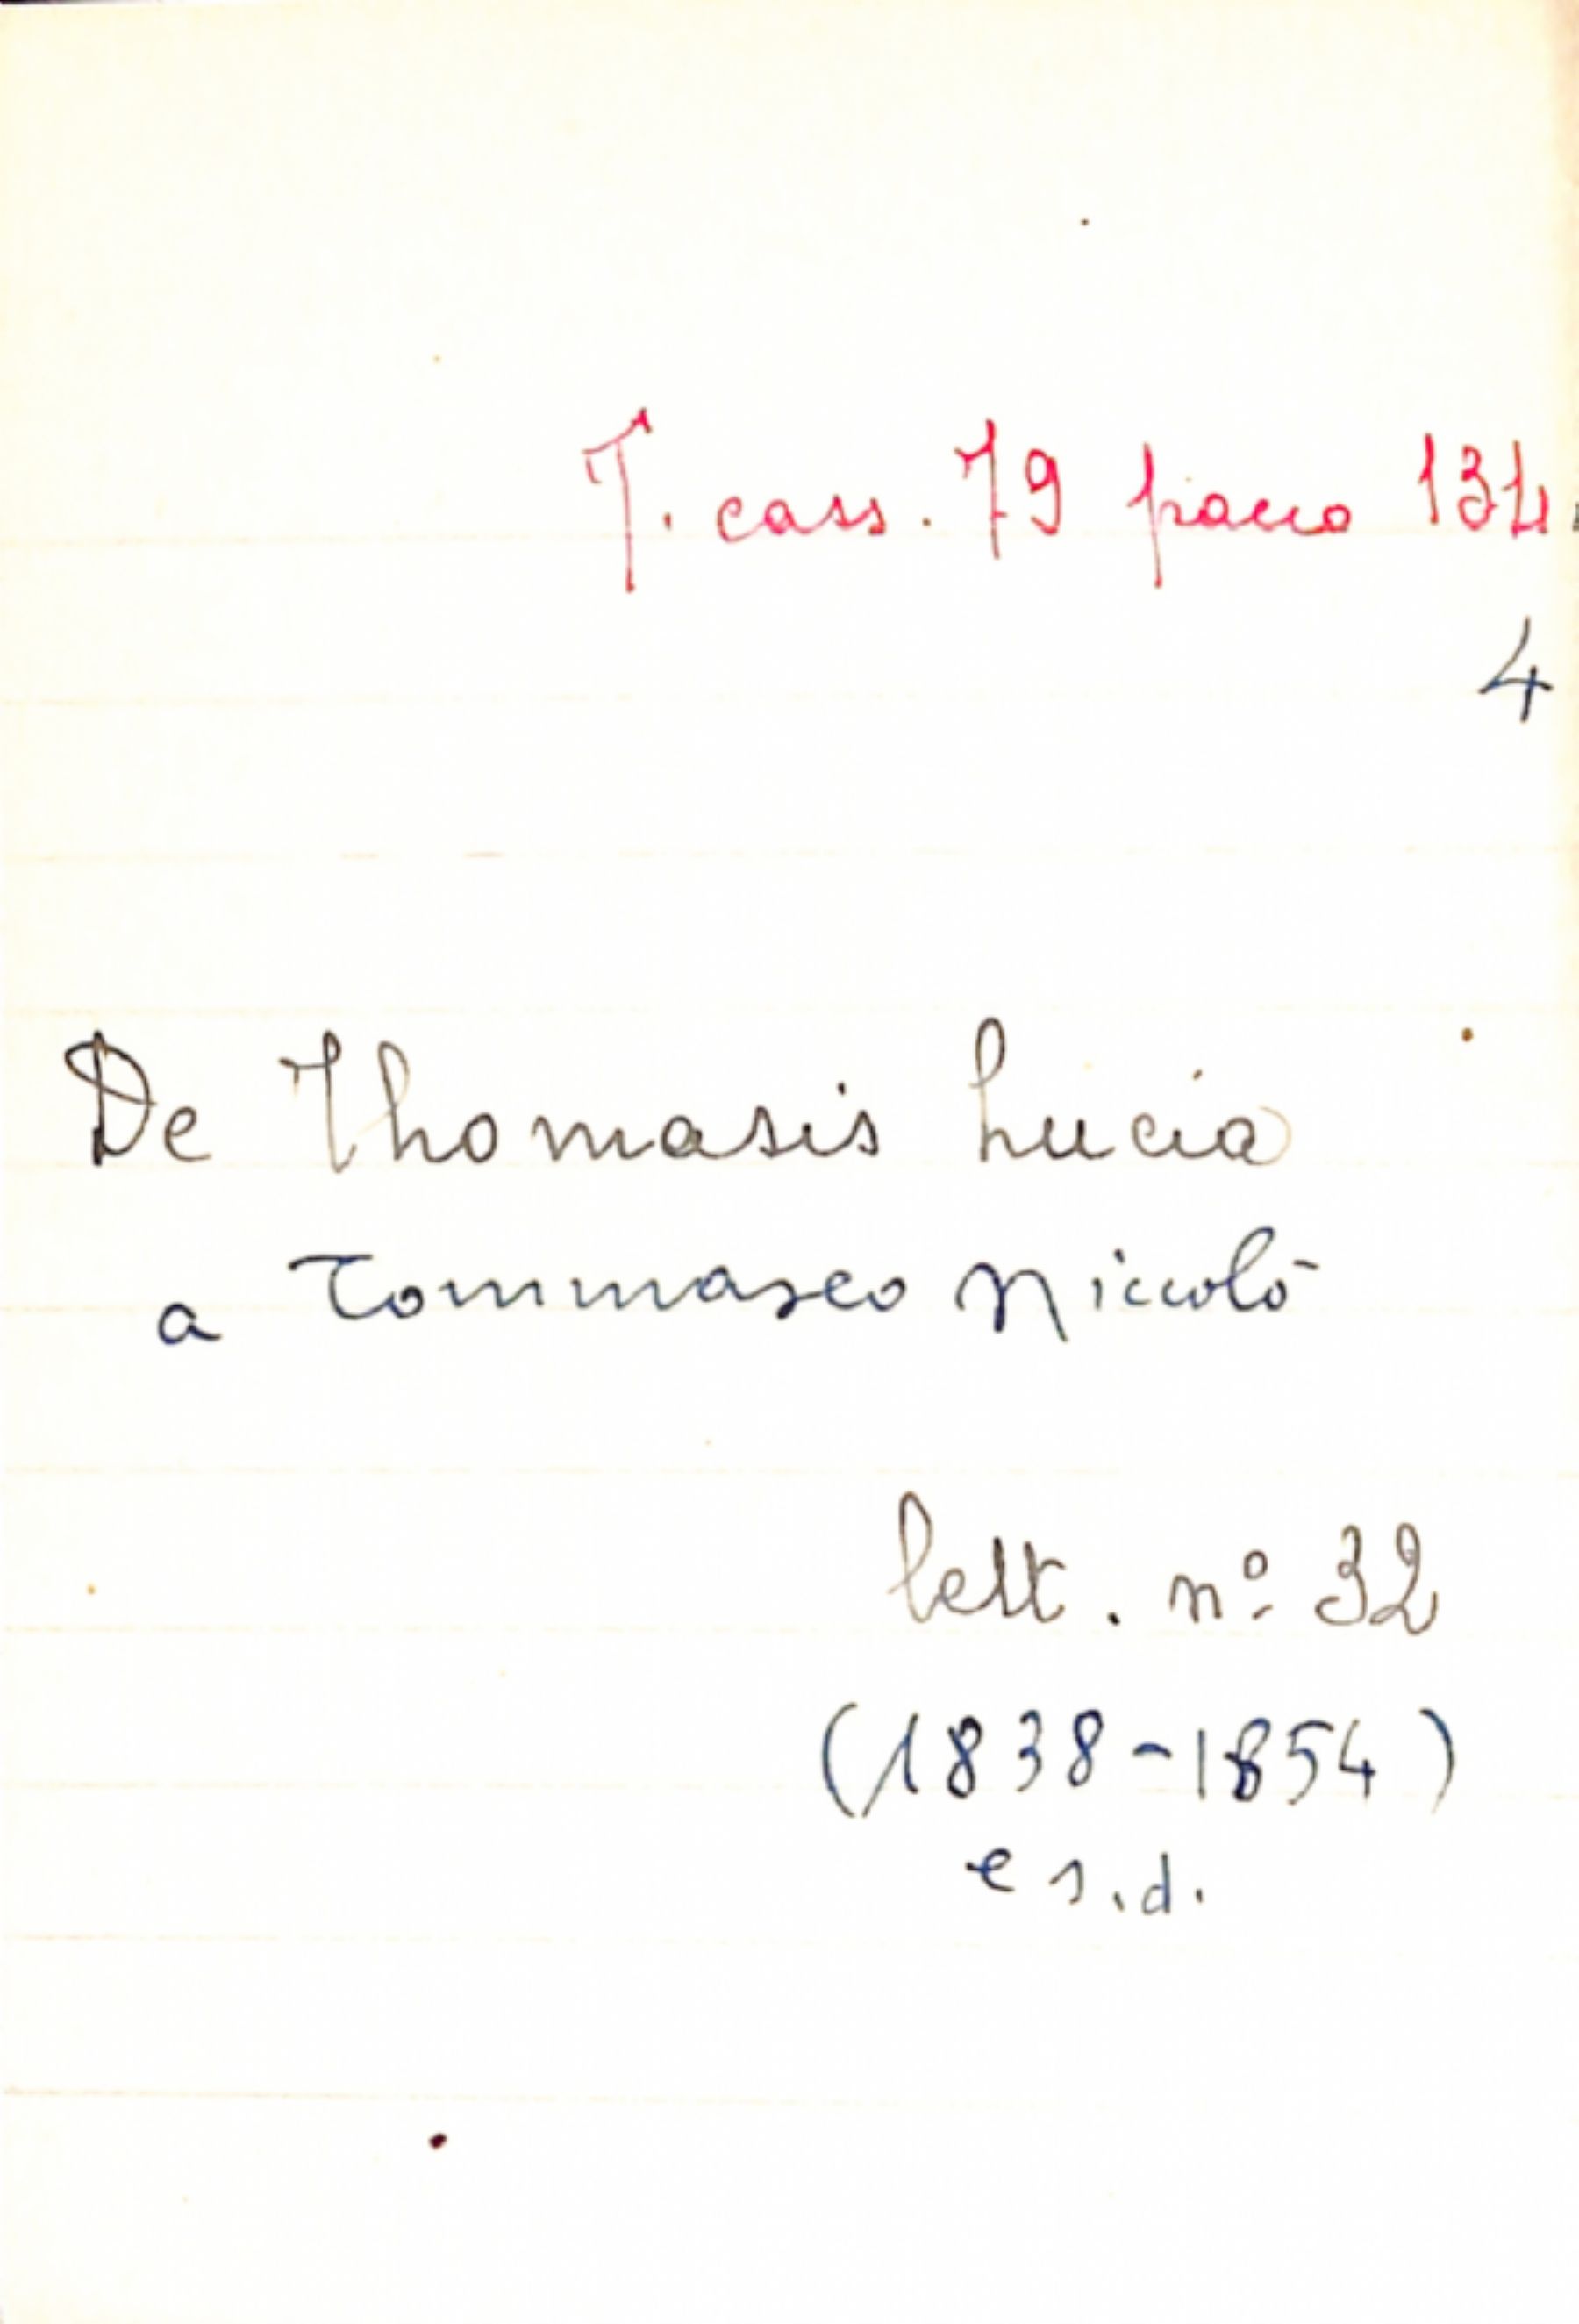 T. cass. 79 pacco 134.
4
De Thomasis Lucia
a Tommaseo Niccolò
lett. nº 32
(1838-1854)
e s.d.